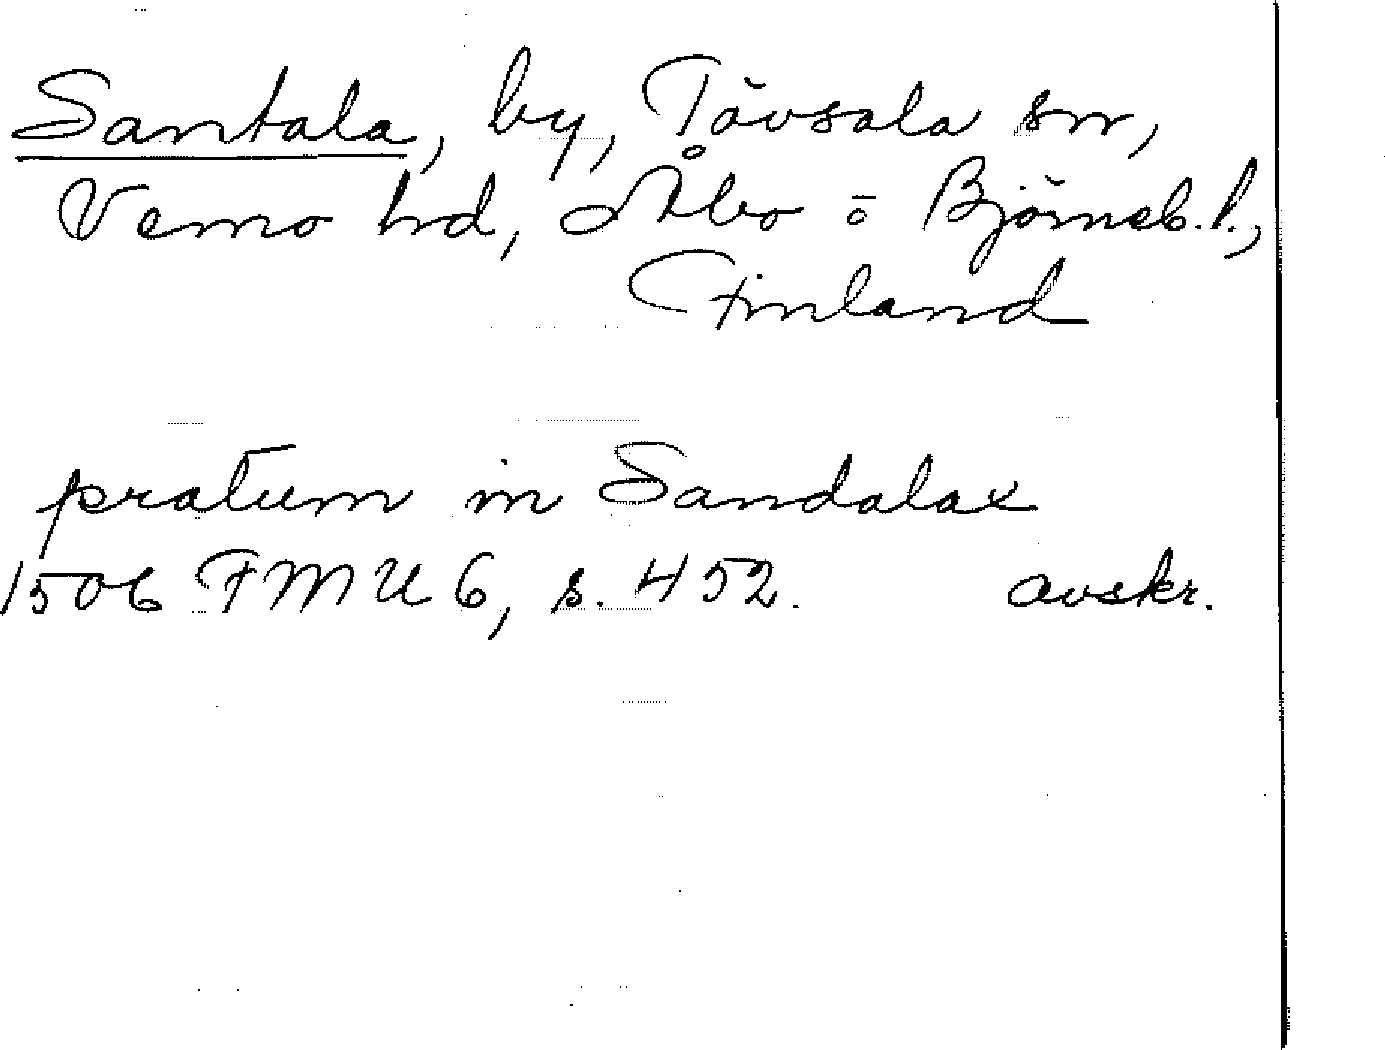 Santala, by, Tövsala sn,
Vemo hd, Åbo o Björneb. l.,
Finland
pratum in Sandalax
1506 FMU 6, s. 452. avskr.